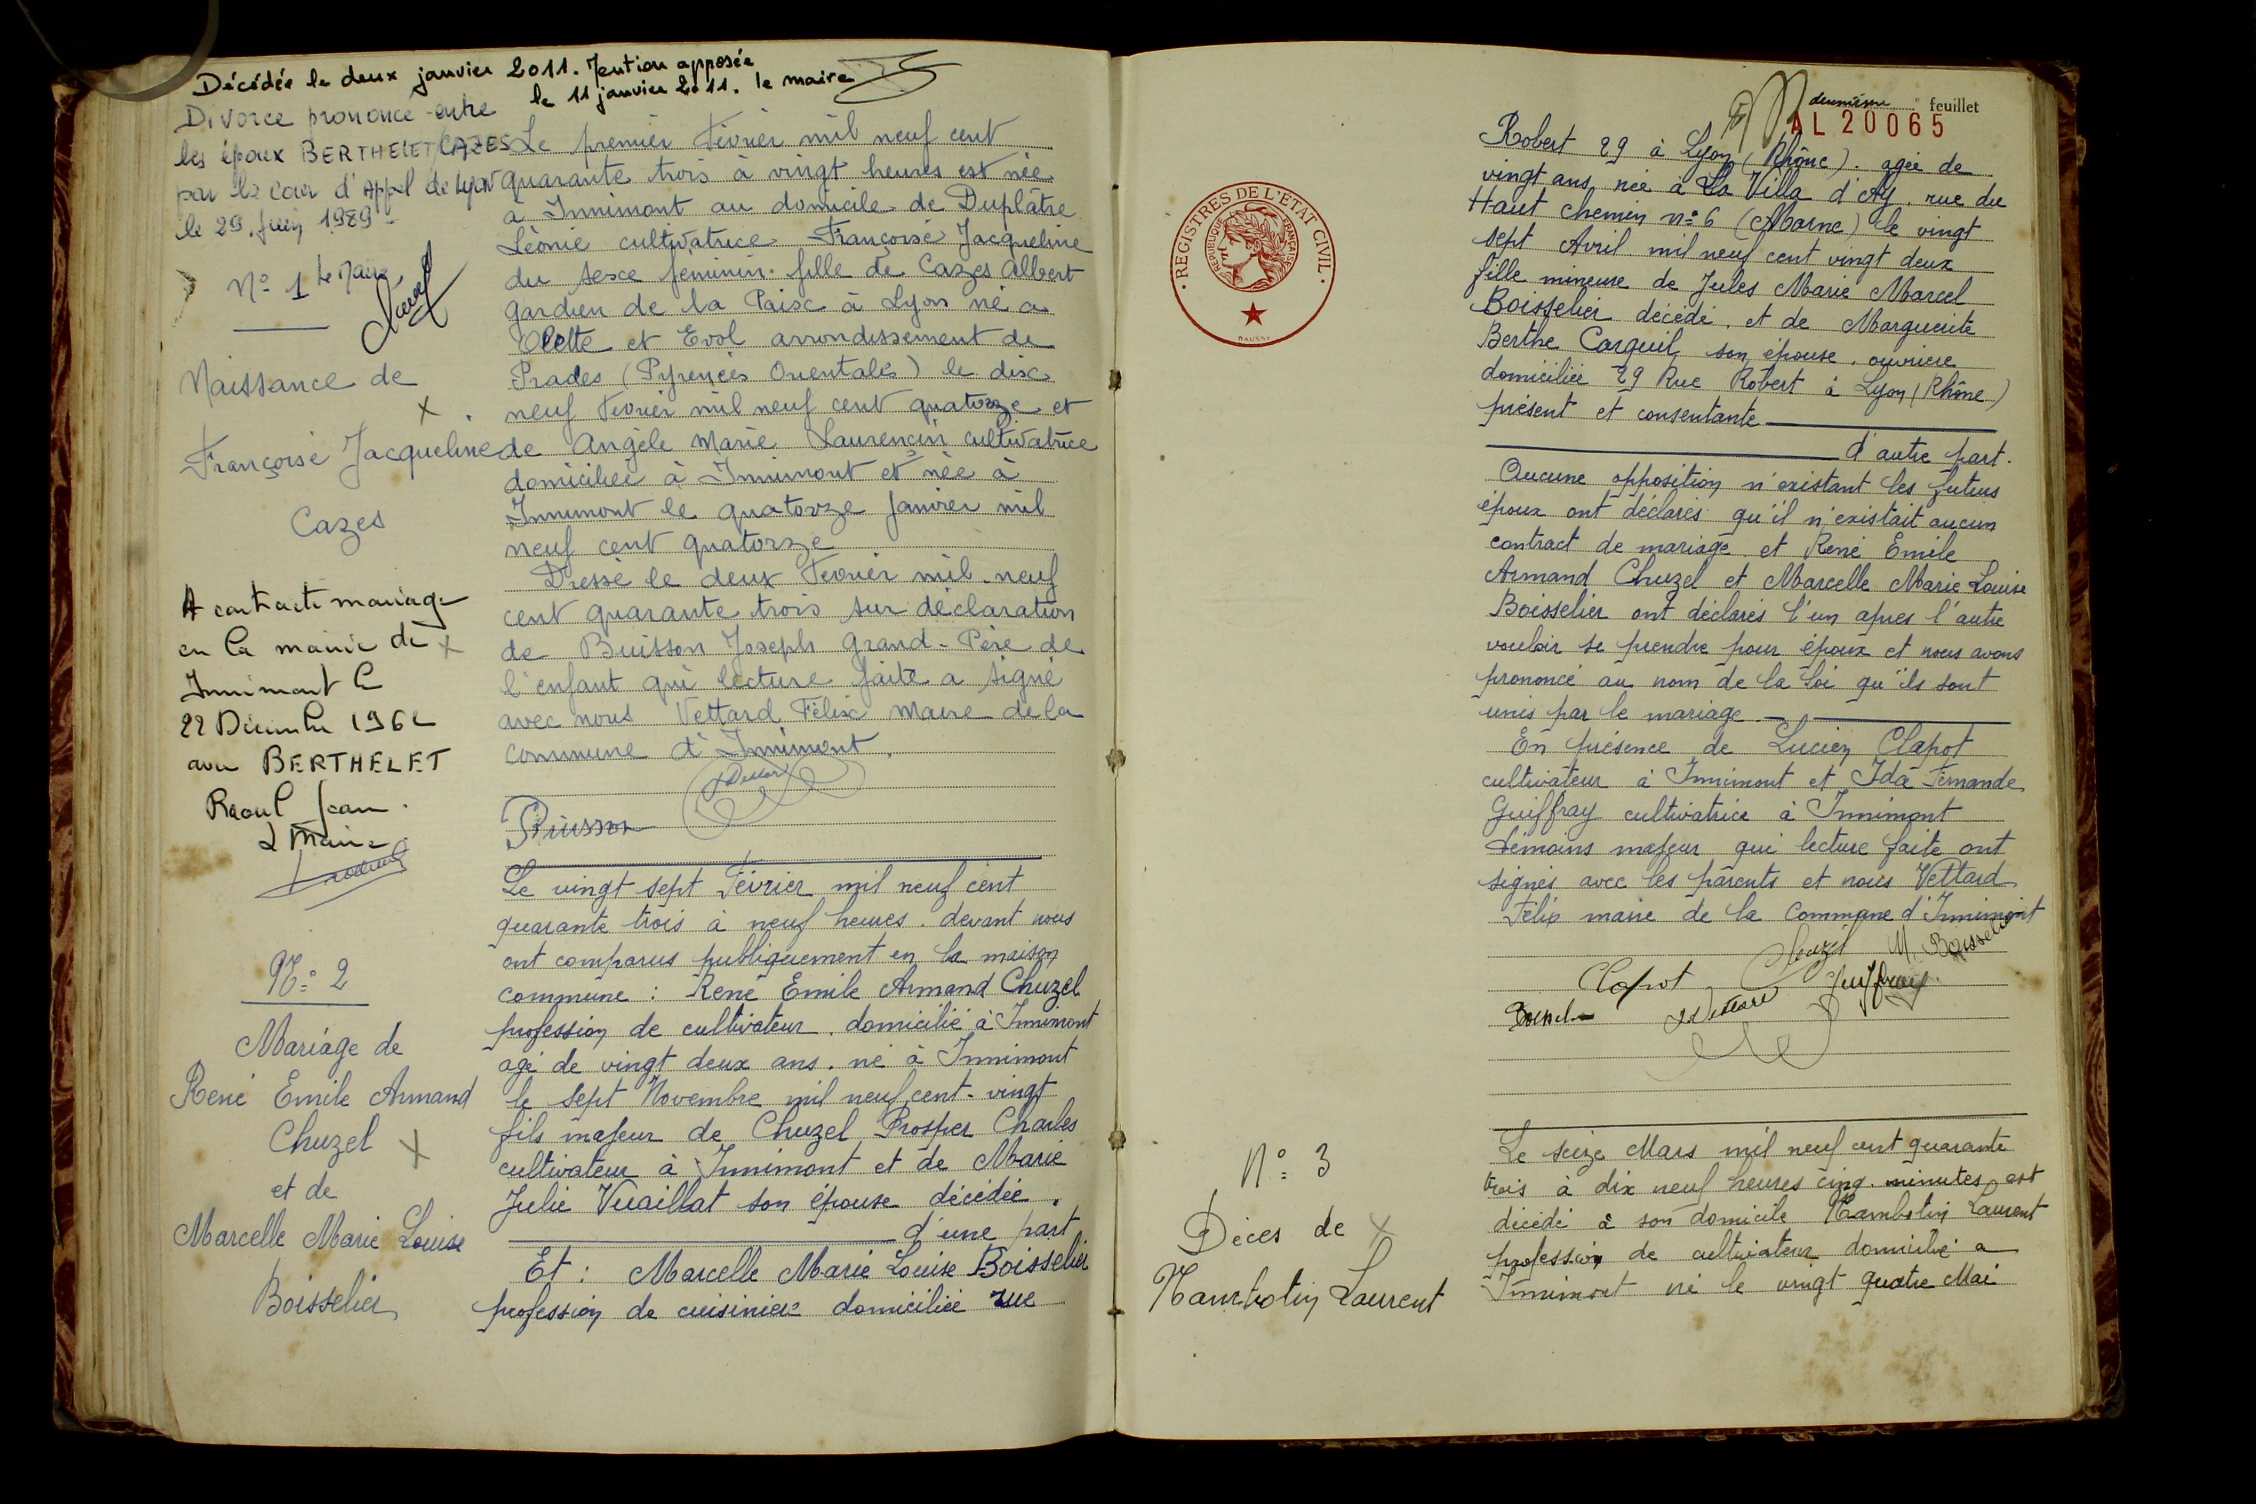 Décédée le deux janvier 2011. Mention apposée
le 11 janvier 2011. le maire
Divorce prononcé entre
les époux BERTHELET/CAZES
par la cour d'Appel de Lyon
le 29 juin 1989
Le Maire
N° 1
Naissance de
Françoise Jacqueline
Cazes
A contracté mariage
en la mairie de
Innimont le
22 Décembre 1962
avec BERTHELET
Raoul Jean.
Le Maire
Le premier Février mil neuf cent
quarante trois à vingt heures est née
a Innimont au domicile de Duplâtre
Léonie cultivatrice Françoise Jacqueline
du sexe féminin. fille de Cazes Albert
gardien de la Paix à Lyon né a
Olette et Evol arrondissement de
Prades (Pyrenées Orientales) le dix
neuf Fevrier mil neuf cent quatorze et
de Angèle Marie Laurencin cultivatrice
domiciliée à Innimont et née à
Innimont le quatorze Janvier mil
neuf cent quatorze
Dressé le deux Fevrier mil neuf
cent quarante trois sur déclaration
de Buisson Joseph Grand-Père de
l'enfant qui lecture faite a signé
avec nous Vettard Félix Maire de la
commune d'Innimont.
Buisson
N° 2
Mariage de
René Emile Armand
Chuzel
et de
Marcelle Marie Louise
Boisselier
Le vingt sept Février mil neuf cent
quarante trois à neuf heures. devant nous
ont comparus publiquement en la maison
commune : René Emile Armand Chuzel
profession de cultivateur. domicilié à Innimont
agé de vingt deux ans. né à Innimont
le sept Novembre mil neuf cent-vingt
fils majeur de Chuzel Prosper Charles
cultivateur à Innimont et de Marie
Julie Vuaillat son épouse décédée.
d'une part
Et : Marcelle Marie Louise Boisselier
profession de cuisinière domiciliée rue
deuxième feuillet
AL 20065
REGISTRES DE L'ETAT CIVIL
REPUBLIQUE FRANÇAISE
Robert 29 à Lyon (Rhône). agée de
vingt ans née à La Villa d'Ay. rue du
Haut chemin n° 6 (Marne) le vingt
sept Avril mil neuf cent vingt deux
fille mineuse de Jules Marie Marcel
Boisselier décédé. et de Marguerite
Berthe Carqueil son épouse. ouvriere
domiciliée 29 Rue Robert à Lyon (Rhône)
présent et consentante
d'autre part.
Aucune opposition n'existant les futurs
époux ont déclarés qu'il n'existait aucun
contract de mariage et René Emile
Armand Chuzel et Marcelle Marie Louise
Boisselier ont déclarés l'un apres l'autre
vouloir se prendre pour époux et nous avons
prononcé au nom de la Loi qu'ils sont
unis par le mariage.
En présence de Lucien Clapot
cultivateur à Innimont et Ida Fernande
Guiffray cultivatrice à Innimont
témoins majeur qui lecture faite ont
signés avec les parents et nous Vettard
Félix maire de la Commune d'Innimont
Chuzel M. Boisselier
Clapot Guiffray
Vettard
N° 3
Déces de
Laurent
Le seize Mars mil neuf cent quarante
trois à dix neuf heures cinq minutes est
décédé à son domicile Laurent
profession de cultivateur domicilié a
Innimont né le vingt quatre Mai